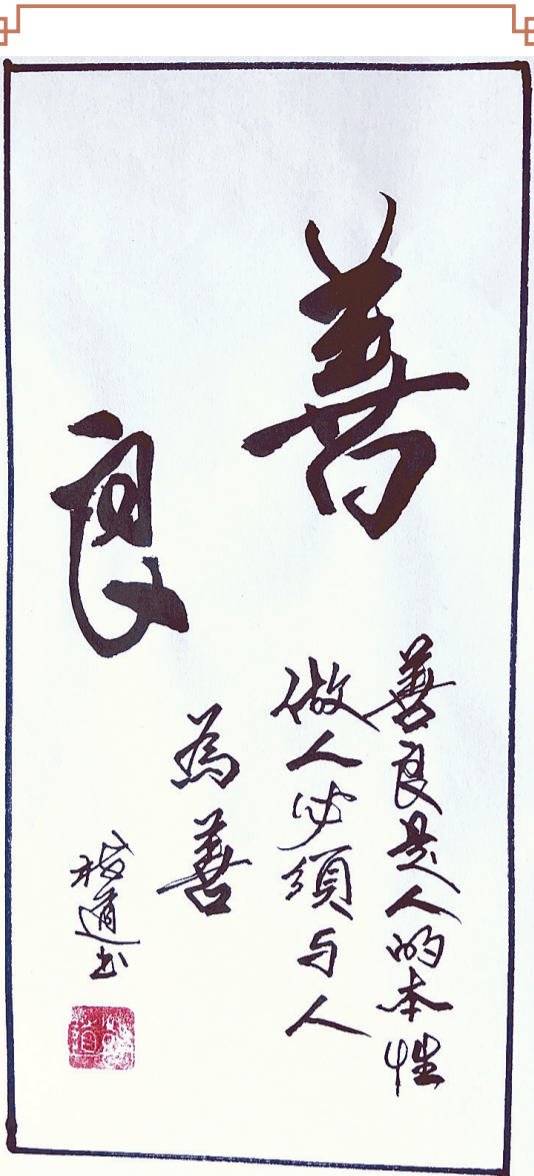 善
良
善良是人的本性
做人必須与人
為善
道书